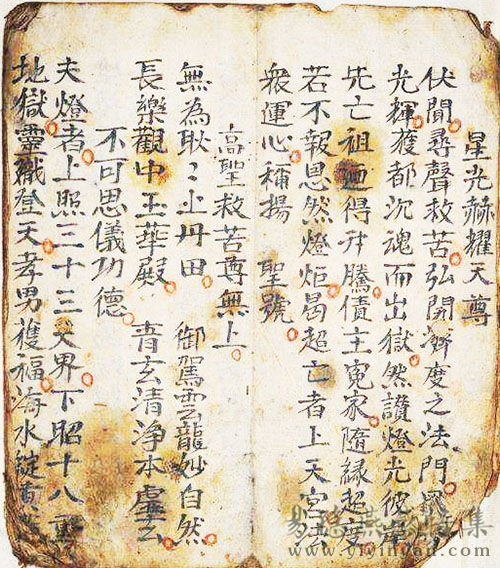 星光赫耀天尊
伏聞尋聲救苦弘開濟度之法門
光輝獲都沉魂而出獄然讚燈光彼
先亡祖得升騰債主冤家隨緣超度
若不報恩然燈炬曷超亡者上天宮
眾運心稱揚 聖號
高聖救苦尊無上
無為耿〻止丹田 御駕雲龍妙自然
長樂觀中玉華殿 青玄清淨本虛
不可思儀功德
夫燈者上照三十三天界下照十八
地獄靈登天孝男獲福海水綻
www.yiyinyan.com